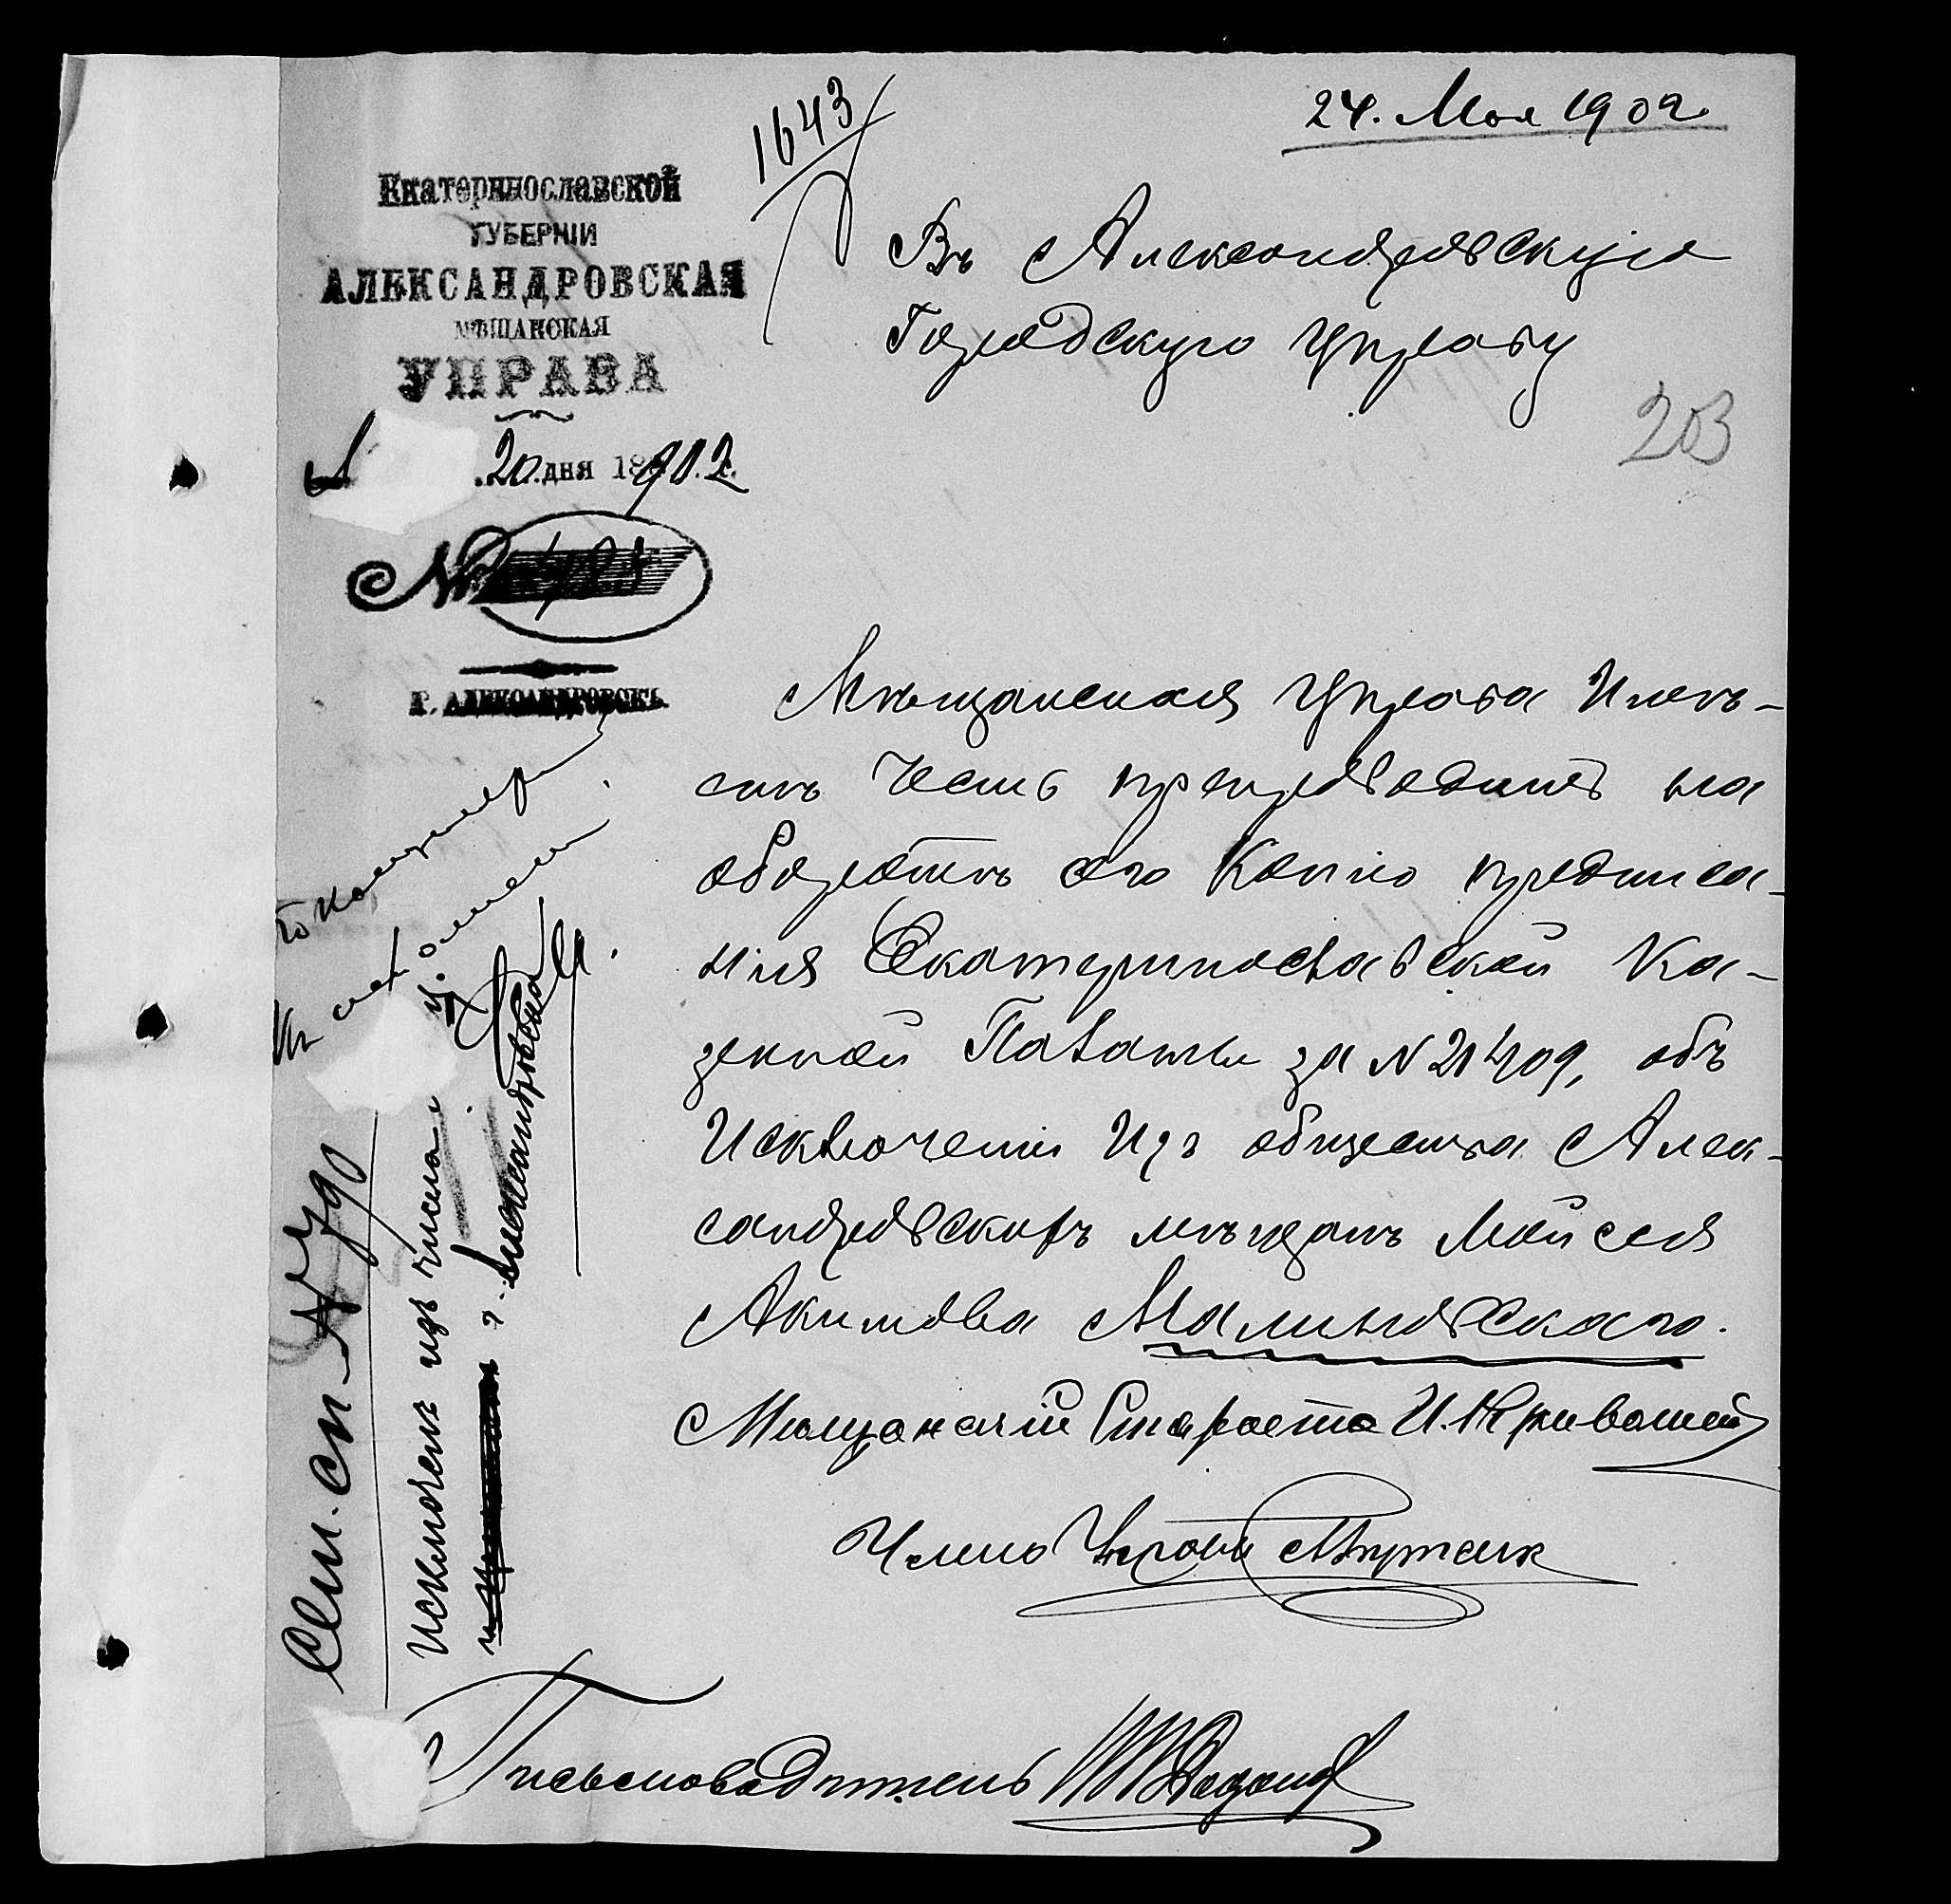 24. Мая 1902
1643
Екатеринославской
ГУБЕРНІИ
АЛЕКСАНДРОВСКАЯ
МѢЩАНСКАЯ
УПРАВА
20 дня 1902 г.
№
Г. АЛЕКСАНДРОВСКЪ.
Въ Александровскую
Городскую Управу
203
Мѣщанская Управа Имѣ-
етъ честь препроводить на
оборотѣ сего Копію предписа-
нія Екатеринославской Ка-
зенной Палаты за N 21409, объ
Исключеніи Изъ общества Алек-
сандровскихъ мѣщанъ Мойсея
Акимова Малиновскаго.
Мѣщанскій Староста И.
Членъ Управы
Письмоводитель
Сем. сп. N 790
Исключенъ изъ числа
г. Александровска